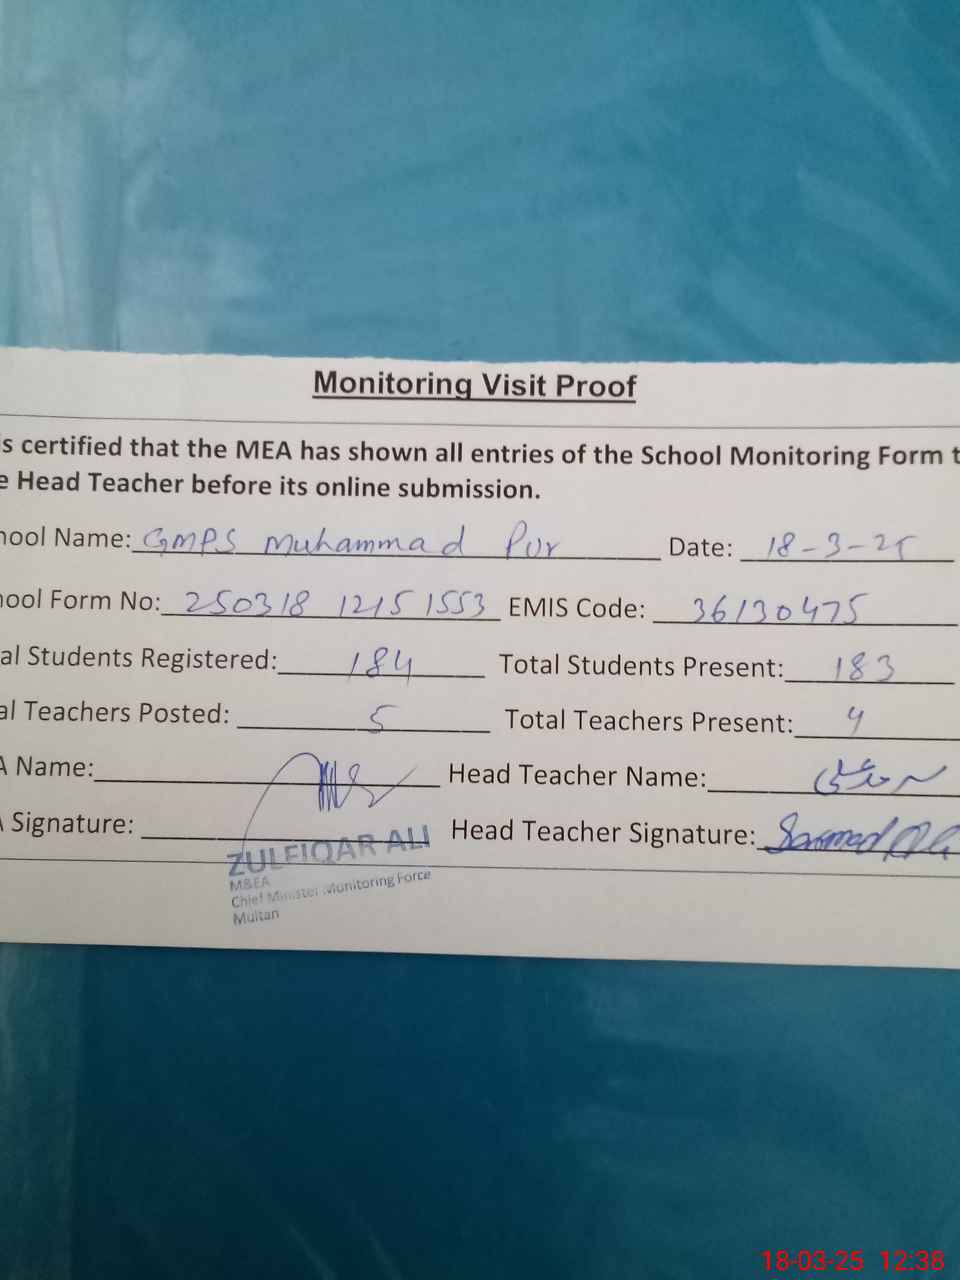 Monitoring Visit Proof
is certified that the MEA has shown all entries of the School Monitoring Form t
e Head Teacher before its online submission.
hool Name: GMPS Muhammad Pur Date: 18-3-25
hool Form No: 250318 12151553 EMIS Code: 36130475
al Students Registered: 184 Total Students Present: 183
al Teachers Posted: 5 Total Teachers Present: 4
A Name: Head Teacher Name:
A Signature: Head Teacher Signature: Sarmad
ZULFIQAR ALI
M&EA
Chief Minister Munitoring Force
Multan
18-03-25 12:38